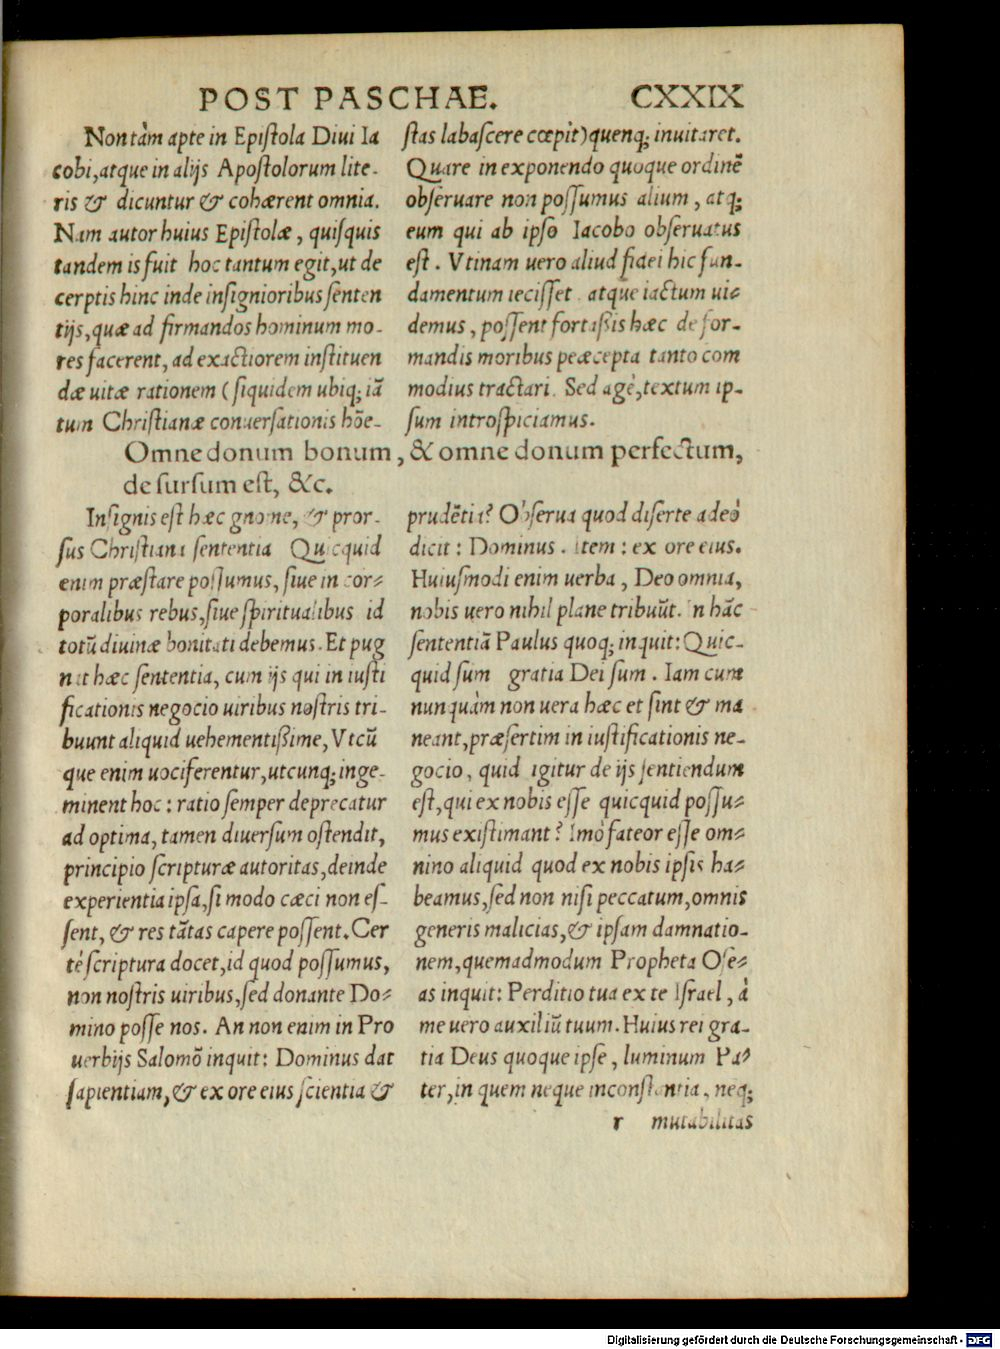 POST PASCHAE. CXXIX
Non tàm apte in Epiſtola Diui Ia
cobi, atque in alijs Apoſtolorum lite-
ris & dicuntur & cohærent omnia.
Nam autor huius Epiſtolæ, quiſquis
tandem is fuit hoc tantum egit, ut de
cerptis hinc inde inſignioribus ſenten
tijs, quæ ad firmandos hominum mo-
res facerent, ad exactiorem inſtituen
dæ uitæ rationem (ſiquidem ubiq; iā
tum Chriſtianæ conuerſationis hōe-
ſtas labaſcere cœpit) quenq; inuitaret.
Quare in exponendo quoque ordinē
obſeruare non poſſumus alium, atq;
eum qui ab ipſo Iacobo obſeruatus
eſt. Vtinam uero aliud fidei hic fun-
damentum ieciſſet atque iactum ui-
demus, poſſent fortaßis hæc de for-
mandis moribus peæcepta tanto com
modius tractari. Sed agè, textum ip-
ſum introſpiciamus.
Omne donum bonum, & omne donum perfectum,
de ſurſum eſt, &c.
Inſignis eſt hæc gnome, & pror-
ſus Chriſtiana ſententia Quicquid
enim præſtare poſſumus, ſiue in cor-
poralibus rebus, ſiue ſpiritualibus id
totū diuinæ bonitati debemus. Et pug
nat hæc ſententia, cum ijs qui in iuſti
ficationis negocio uiribus noſtris tri-
buunt aliquid uehementißime, Vtcū
que enim uociferentur, utcunq; inge-
minent hoc: ratio ſemper deprecatur
ad optima, tamen diuerſum oſtendit,
principio ſcripturæ autoritas, deinde
experientia ipſa, ſi modo cæci non eſ-
ſent, & res tātas capere poſſent. Cer
tè ſcriptura docet, id quod poſſumus,
non noſtris uiribus, ſed donante Do-
mino poſſe nos. An non enim in Pro
uerbijs Salomō inquit: Dominus dat
ſapientiam, & ex ore eius ſcientia &
prudētia? Obſerua quod diſerte adeò
dicit: Dominus. item: ex ore eius.
Huiuſmodi enim uerba, Deo omnia,
nobis uero nihil plane tribuūt. In hāc
ſententiā Paulus quoq; inquit: Quic-
quid ſum gratia Dei ſum. Iam cum
nunquàm non uera hæc et ſint & ma
neant, præſertim in iuſtificationis ne-
gocio, quid igitur de ijs ſentiendum
eſt, qui ex nobis eſſe quicquid poſſu-
mus exiſtimant? Imò fateor eſſe om-
nino aliquid quod ex nobis ipſis ha-
beamus, ſed non niſi peccatum, omnis
generis malicias, & ipſam damnatio-
nem, quemadmodum Propheta Oſe-
as inquit: Perditio tua ex te Iſrael, à
me uero auxiliū tuum. Huius rei gra-
tia Deus quoque ipſe, luminum Pa-
ter, in quem neque inconſtantia, neq;
r mutabilitas
Digitalisierung gefördert durch die Deutsche Forschungsgemeinschaft - DFG